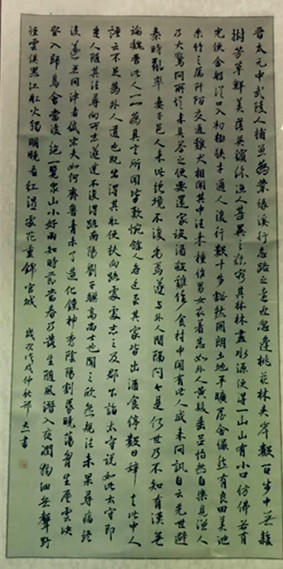 晋太元中武陵人捕魚為業緣溪行忘路之遠近忽逢桃花林夹岸數百步中無雜
樹芳草鮮美落英繽纷渔人甚異之窮其林林盡水源便得一山山有小口仿佛若有
光便舍船從口入初极狭才通人復行數十步豁然開朗土地平曠屋舍儼然有良田美池
桑竹之属阡陌交通雞犬相聞其中往来種作男女衣著悉如外人黄髮垂髫怡然自樂見渔人
乃大驚問所從来具答之便要還家設酒殺雞作食村中聞有此人咸来問訊自云先世避
秦時亂率妻子邑人来此绝境不復出焉遂與外人間隔問今是何世乃不知有漢無
論魏晋此人一一為具言所聞皆歎惋餘人各復延至其家皆出酒食停數日辞去此中人
語云不足為外人道也既出得其船便扶向路處處志之及郡下詣太守說如此太守即
遣人隨其往尋向所志遂迷不復得路南陽劉子驥高尚士也聞之欣然規往未果尋病終
後遂無問津者岱宗夫如何齊魯青未了造化鍾神秀陰陽割昏曉蕩胸生層雲决
眥入歸鳥會當凌绝頂一覽眾山小好雨知時節當春乃發生隨風潛入夜潤物细無聲野
徑雲俱黑江船火獨明曉看紅濕處花重錦官城戊戌仲秋書